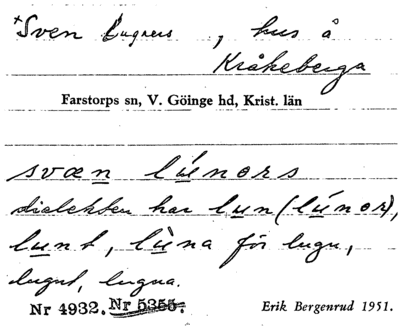 *Sven Lugners, hus å
Kråkeberga
Farstorps sn, V. Göinge hd, Krist. län
svæn lúnərs
dialekten har lun (lúnər),
lunt, lùna för lugn,
lugnt, lugna.
Nr 4932. Nr 5355.
Erik Bergenrud 1951.